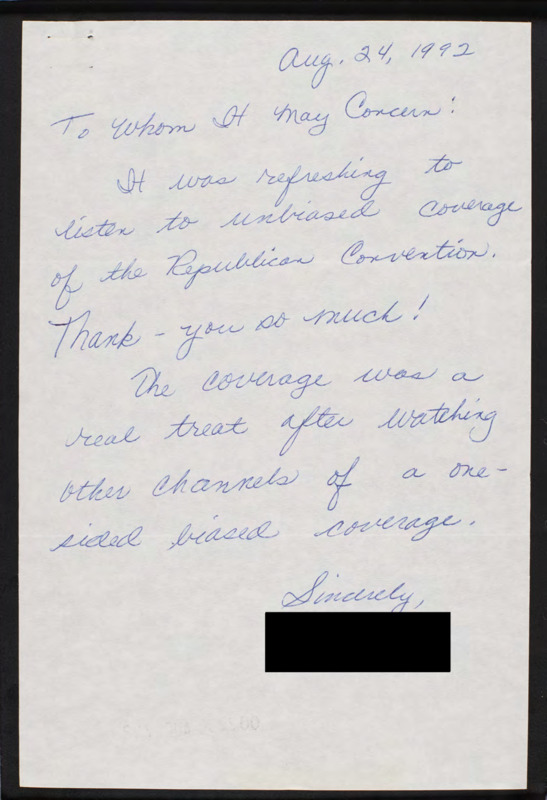 Aug. 24, 1992
To Whom It May Concern:
It was refreshing to
listen to unbiased coverage
of the Republican Convention.
Thank-you so much!
The coverage was a
real treat after watching
other channels of a one-
sided biased coverage.
Sincerely,